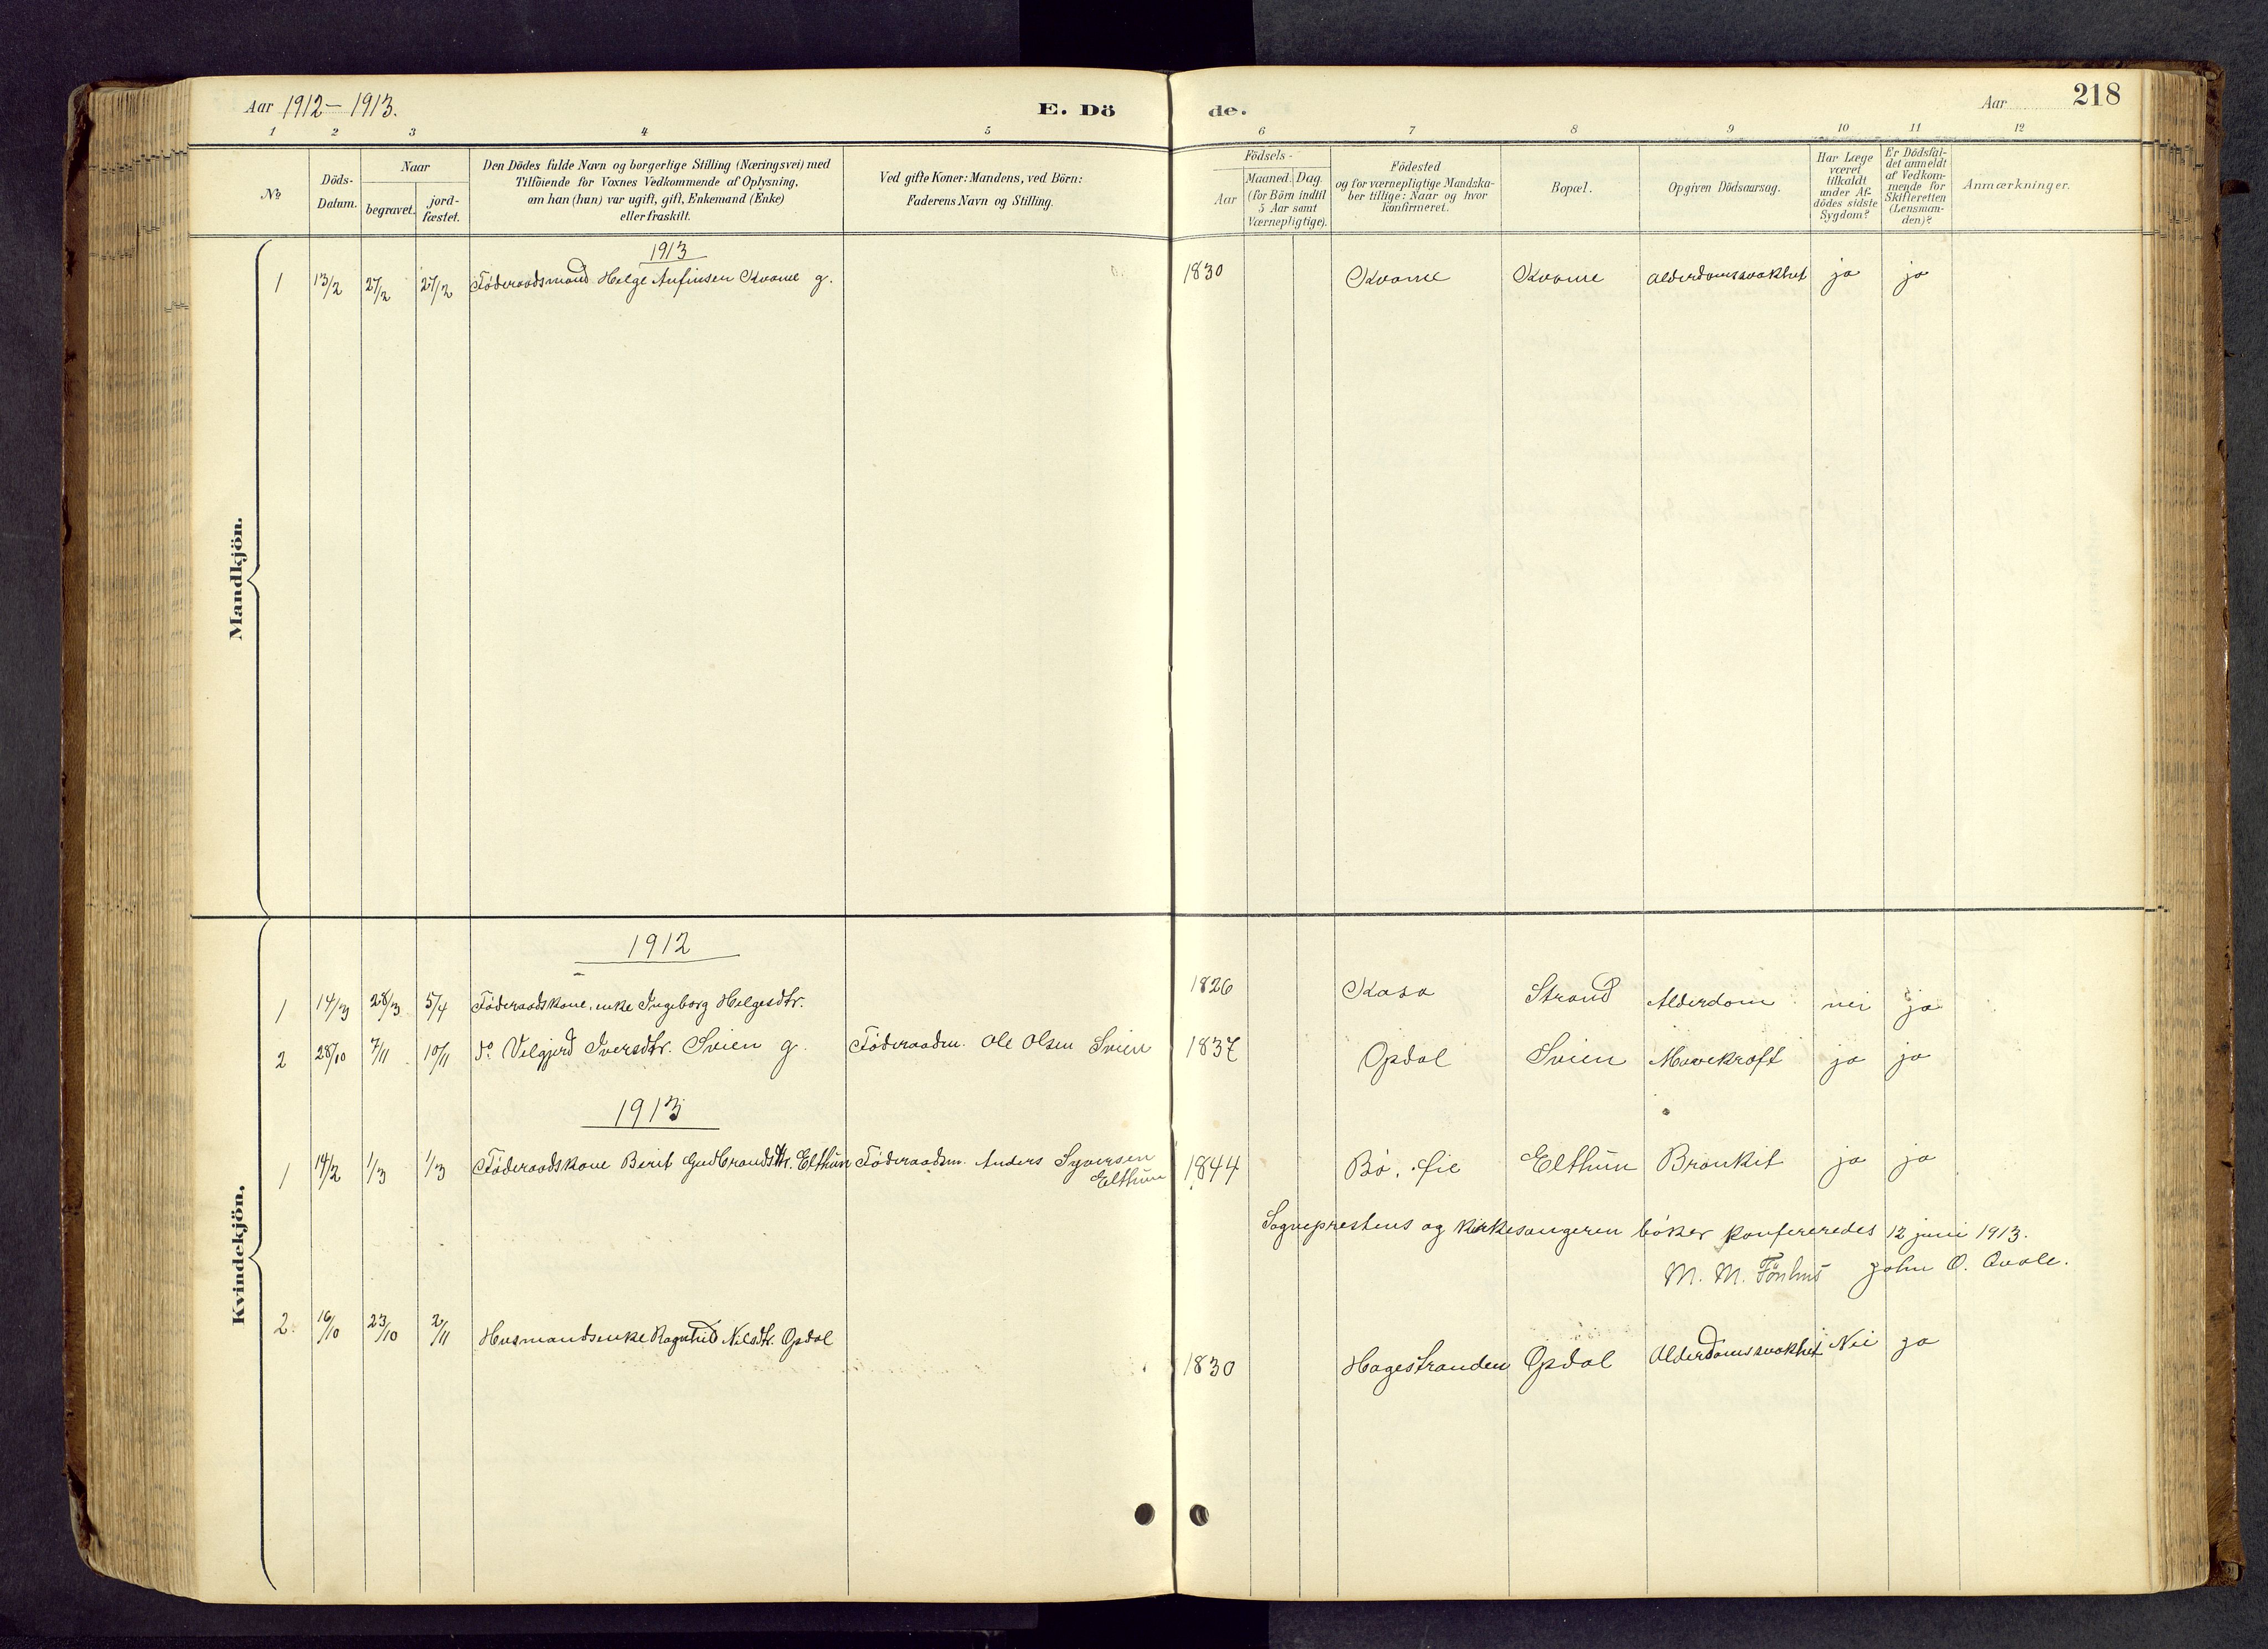 Aar 1912 – 1913. E. Dö de. Aar 218
1 2 3 4 5 6 7 8 9 10 11 12
No
Döds-Datum.
Naar
begravet.
jord-fæstet.
Den Dödes fulde Navn og borgerlige Stilling (Næringsvei) med
Tilföiende for Voxnes Vedkommende af Oplysning,
om han (hun) var ugift, gift, Enkemand (Enke)
eller fraskilt.
Ved gifte Koner: Mandens, ved Börn:
Faderens Navn og Stilling.
Födsels-
Aar
Maaned. Dag.
(for Börn indtil
5 Aar samt
Værnepligtige).
Födested
og for værnepligtige Mandska-
ber tillige: Naar og hvor
konfirmeret.
Bopæl.
Opgiven Dödsaarsag.
Har Læge
været
tilkaldt
under Af-
dödes sidste
Sygdom?
Er Dödsfal-
det anmeldt
af Vedkom-
mende for
Skifteretten
(Lensman-
den)?
Anmærkninger.
Mandkjön.
1913
1 13/2 27/2 27/2 Föderaadsmand Helge Anfinsen Kvame g. 1830 Kvame Kvame Alderdomssvakhet ja ja
Kvindekjön.
1912
1 14/3 28/3 5/4 Föderaadskone, enke Ingeborg Helgesdtr. 1826 Kasa Strand Alderdom nei ja
2 28/10 7/11 10/11 do Velgjerd Iversdtr. Svien g. Föderaadm. Ole Olsen Svien 1837 Opdal Svien Mavekræft ja ja
1913
1 14/2 1/3 1/3 Föderaadskone Berit Gudbrandsdtr. Elthun Föderaadsm. Anders Syversen
Elthun 1844 Bö, Øie Elthun Bronkit ja ja
Sogneprestens og Kirkesangeren böker konfereredes 12 juni 1913.
M. M. Fönhus John O. Qvale.
2. 16/10 23/10 2/11 Husmandsenke Ragnhild Nilsdtr. Opdal 1830 Hagestranden Opdal Alderdomssvakhet Nei ja